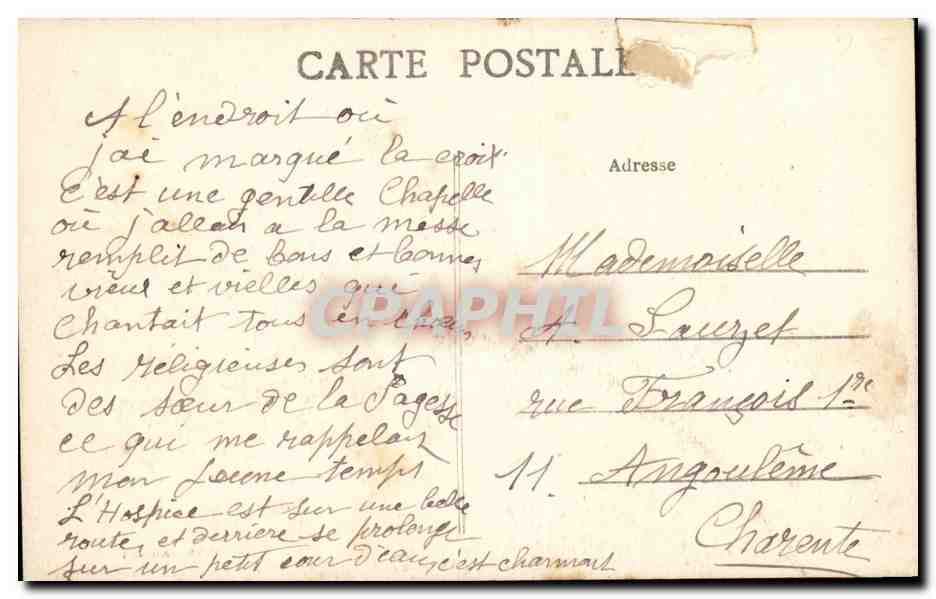 CARTE POSTAL
A l'endroit où
j'ai marqué la croix
C'est une gentille Chapelle
où j'allais a la messe
remplit de bons et bonnes
vieux et vielles qui
Chantait tous en
Les réligieuses sont
des sœur de la Sagesse
ce qui me rappelais
mon Jeune temps
L'Hospice est sur une belle
route, et derriere se prolonge
sur un petit cour d'eau, c'est charmant
Adresse
Mademoiselle
A. Sauzet
rue François 1re
11. Angoulême
Charente
CPAPHIL